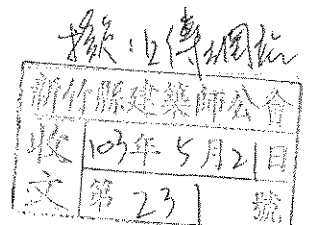 擬:上傳網站
新竹縣建築師公會
收文
103年5月21日
第231號